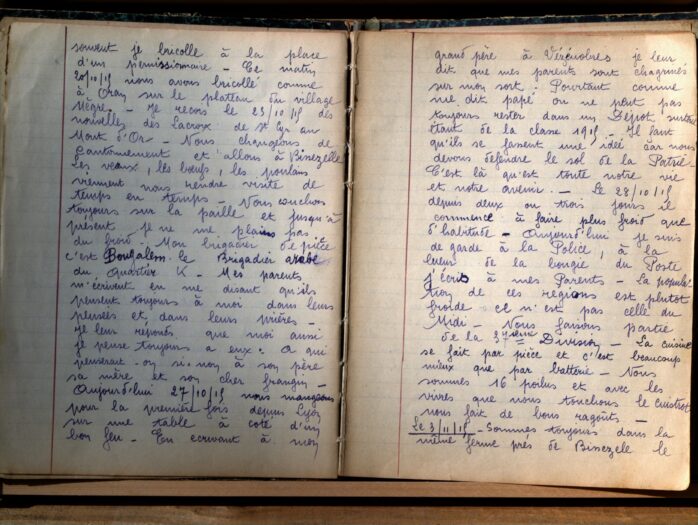 souvent je bricolle à la place
d'un permissionnaire - Ce matin
20/10/15 nous avons bricolé comme
à Oran sur le plateau du village
Nègre. - Je reçois le 23/10/15 des
nouvelles des Lacroix de St Cyr au
Mont d'Or - Nous changeons de
Cantonnement et allons à Bisezelle
Les veaux, les bœufs, les poulains
viennent nous rendre visite de
temps en temps - Nous couchons
toujours sur la paille et jusqu'à
présent je ne me plains pas
du froid - Mon brigadier de pièce
c'est Bougalem le Brigadier arabe
du Quartier K - Mes parents
m'écrivent en me disant qu'ils
pensent toujours à moi dans leurs
pensées et, dans leurs prières -
Je leur réponds que moi aussi
je pense toujours à eux. à qui
penserait-on si non à son père
sa mère et son cher frangin -
Aujourd'hui 27/10/15 nous mangeons
pour la première fois depuis Lyon
sur une table à côté d'un
bon feu - En écrivant à mon
grand père à Vézénobres je leur
dit que mes parents sont chagrinés
sur mon sort : Pourtant comme
me dit papa on ne peut pas
toujours rester dans un Dépôt, surtout
étant de la classe 1915 - Il faut
qu'ils se fassent une idée car nous
devons défendre le sol de la Patrie -
C'est là qu'est toute notre vie
et notre avenir. - Le 28/10/15
depuis deux ou trois jours il
commence à faire plus froid que
d'habitude - Aujourd'hui je suis
de garde à la Police, à la
lueur de la bougie du Poste
j'écris à mes Parents - La popula-
tion de ces régions est plutôt
froide ce n'est pas celle du
Midi - Nous faisons partie
de la 3ième Division - La cuisine
se fait par pièce et c'est beaucoup
mieux que par batterie - Nous
sommes 16 poilus et avec les
vivres que nous touchons le cuistot
nous fait de bons ragoûts -
Le 3/11/15 - Sommes toujours dans la
même ferme près de Bisezele le